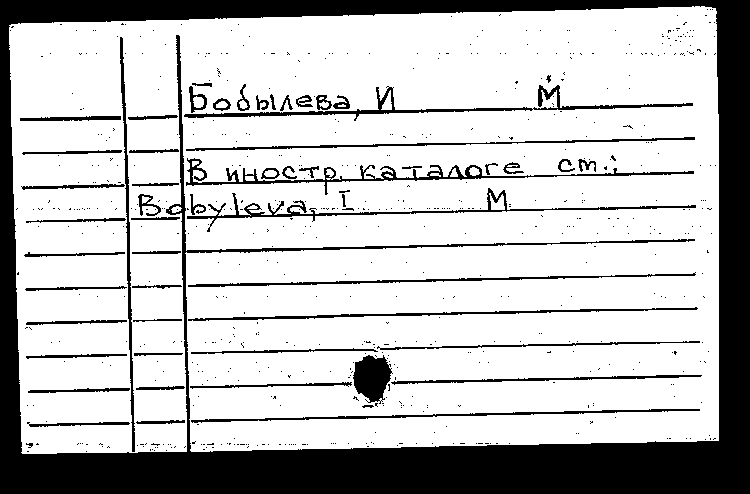 Бобылева, И М
В иностр. каталоге см.:
Bobyleva, I M